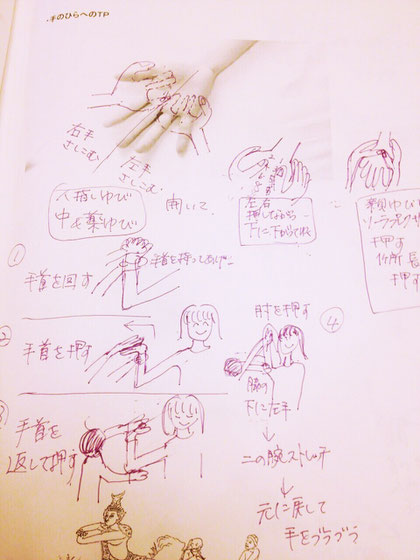 ・手のひらへのTP
右手
さしこむ
左手
さしこむ
人指しゆび
中&薬ゆび
開いて
左右
押しながら
下に下がってく
親ゆびで
押す
1ヶ所
押す
①
手首を回す
②
手首を押す
3
手首を
返して押す
④
肘を押す
脇の
下に左手
↓
二の腕ストレッチ
↓
元に戻して
手をブラブラ